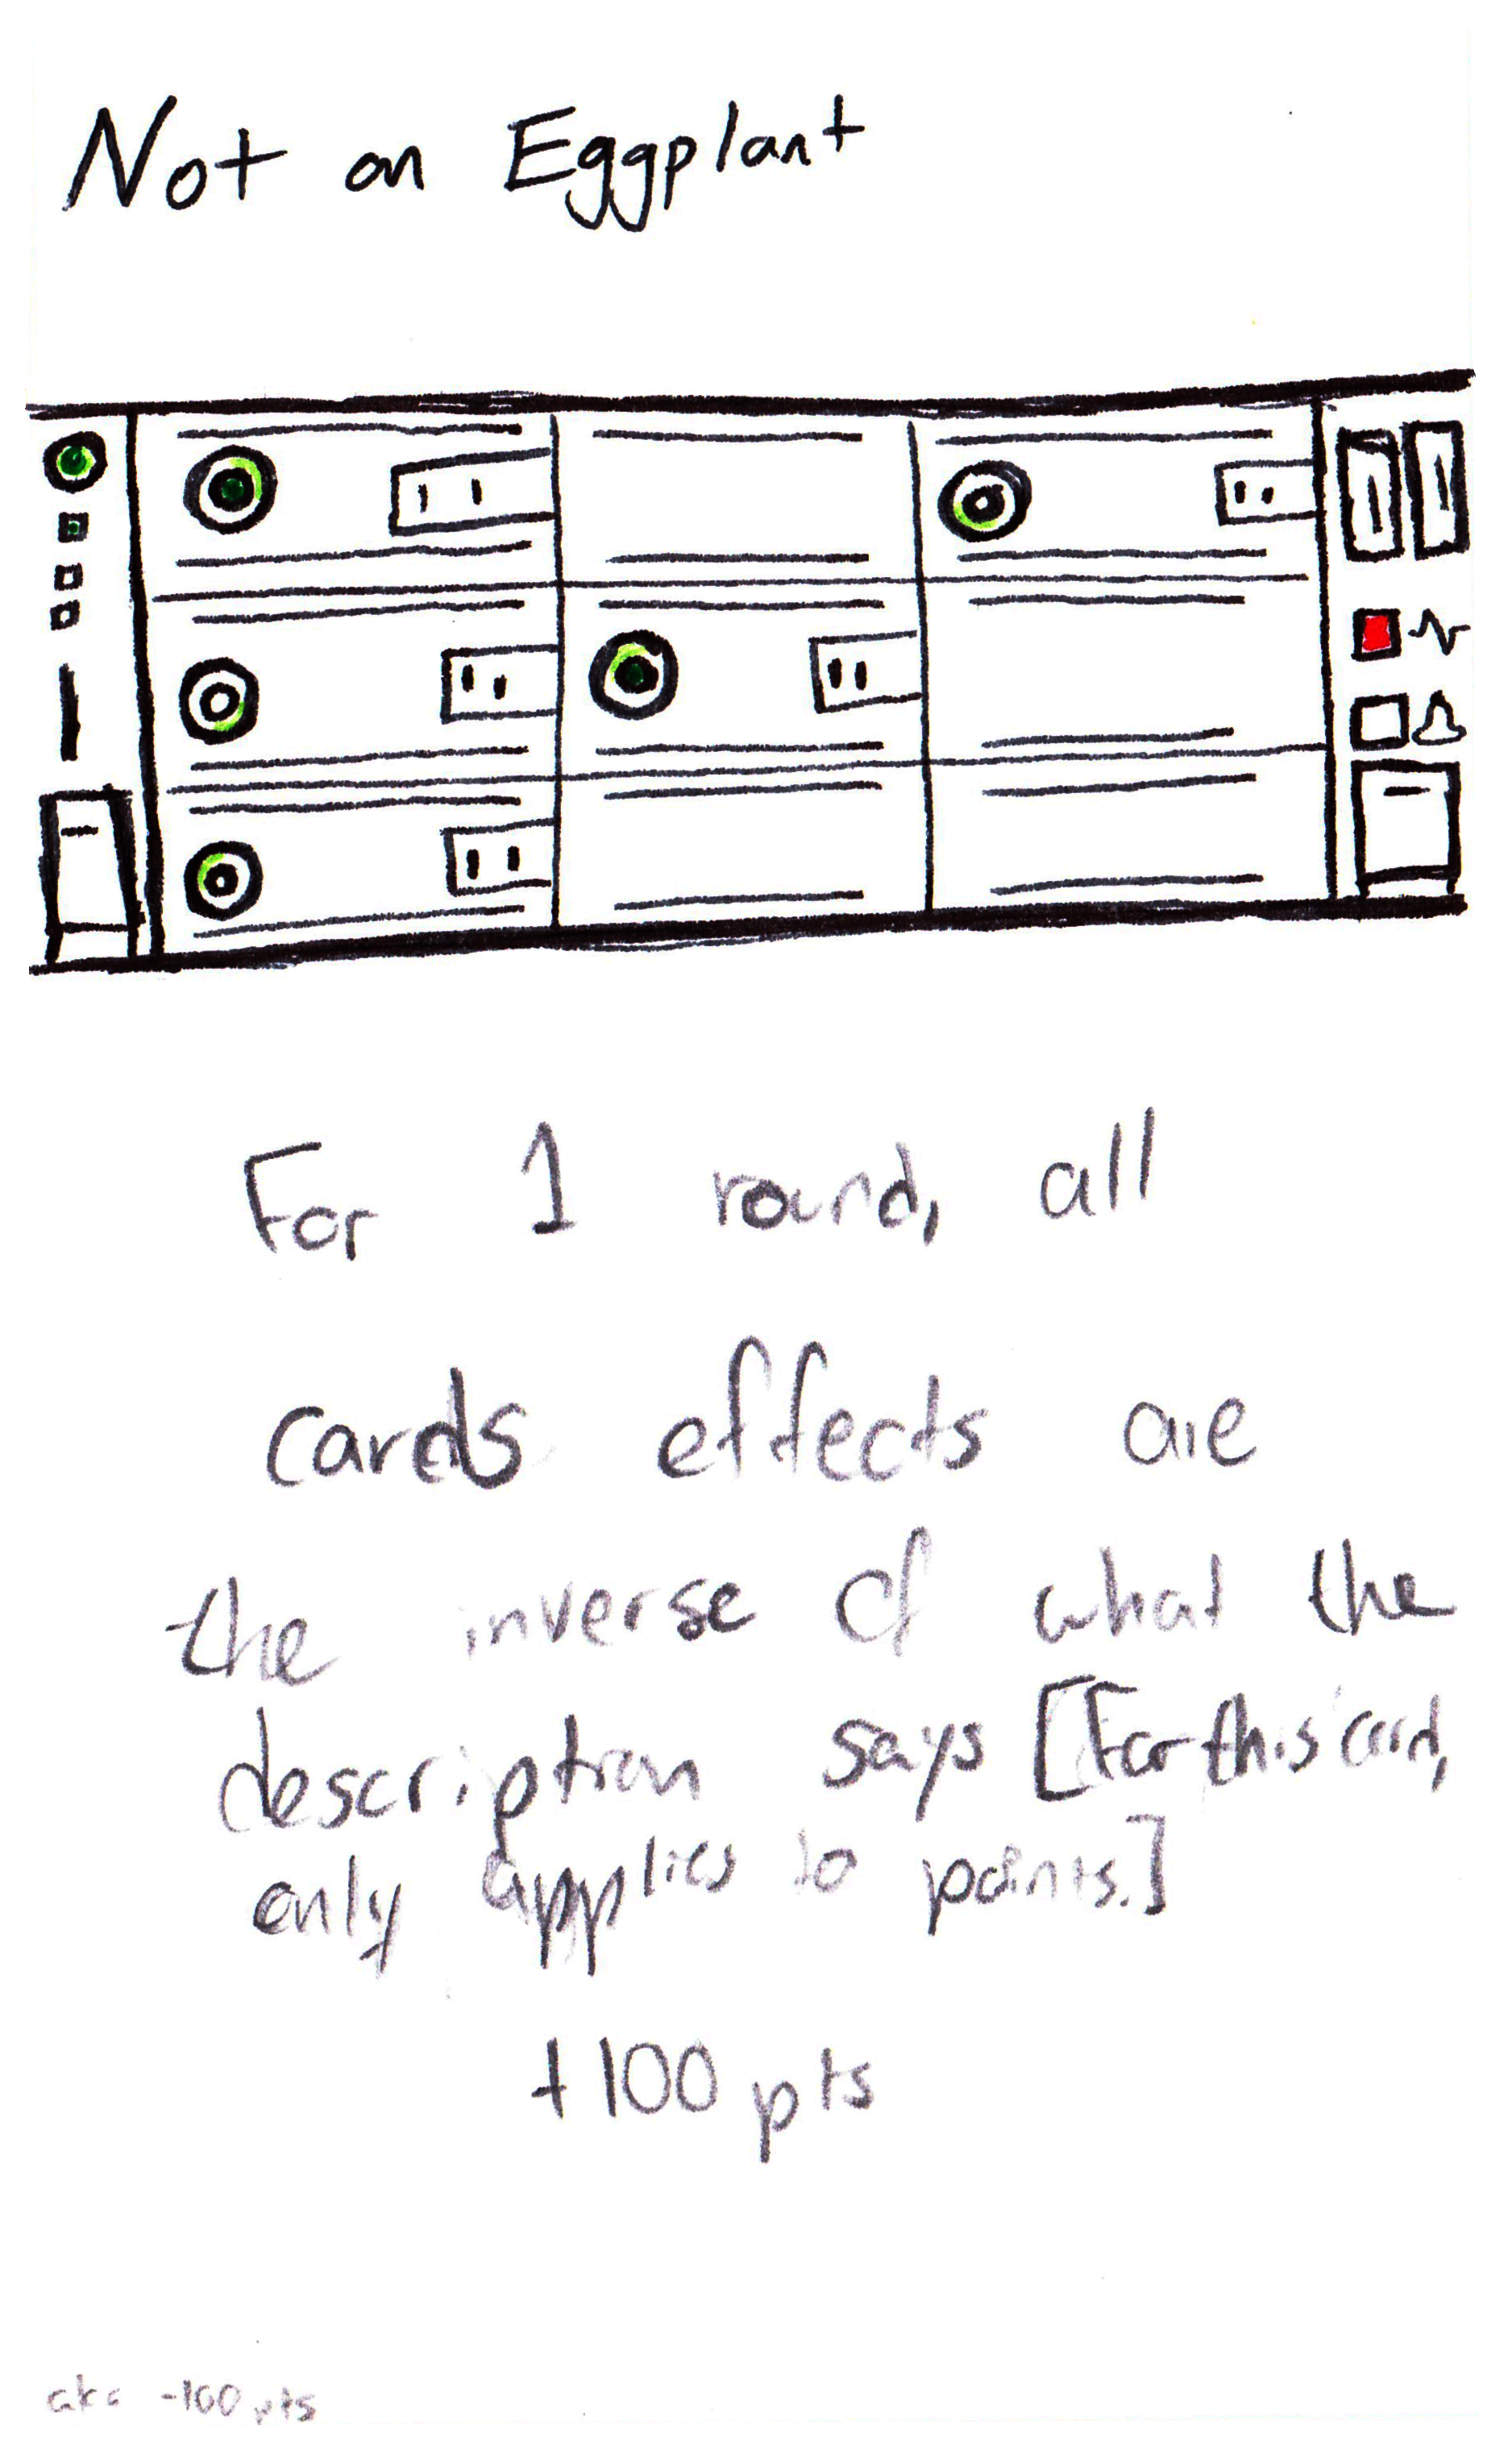 Not an Eggplant
For 1 round, all
cards effects are
the inverse of what the
description says [For this card,
only applies to points.]
+100 pts
aka -100 pts